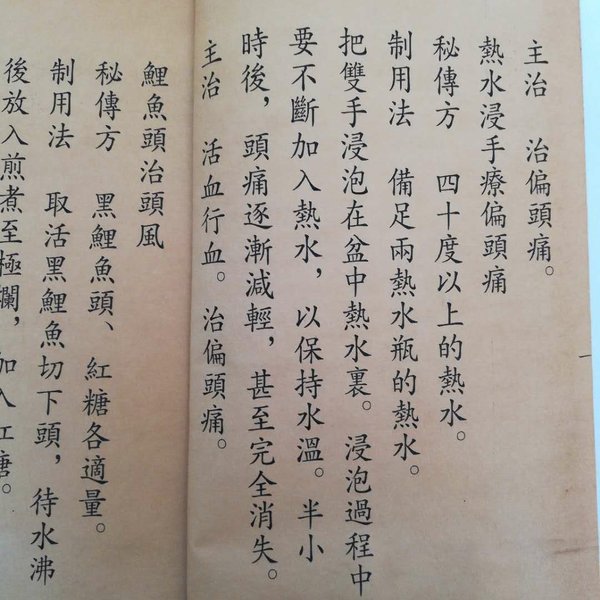 主治 治偏頭痛。
熱水浸手療偏頭痛
秘傳方 四十度以上的熱水。
制用法 備足兩熱水瓶的熱水。
把雙手浸泡在盆中熱水裏。浸泡過程中
要不斷加入熱水，以保持水溫。半小
時後，頭痛逐漸減輕，甚至完全消失。
主治 活血行血。治偏頭痛。
鯉魚頭治頭風
秘傳方 黑鯉魚頭、紅糖各適量。
制用法 取活黑鯉魚切下頭，待水沸
後放入煎煮至極爛，加入紅糖。